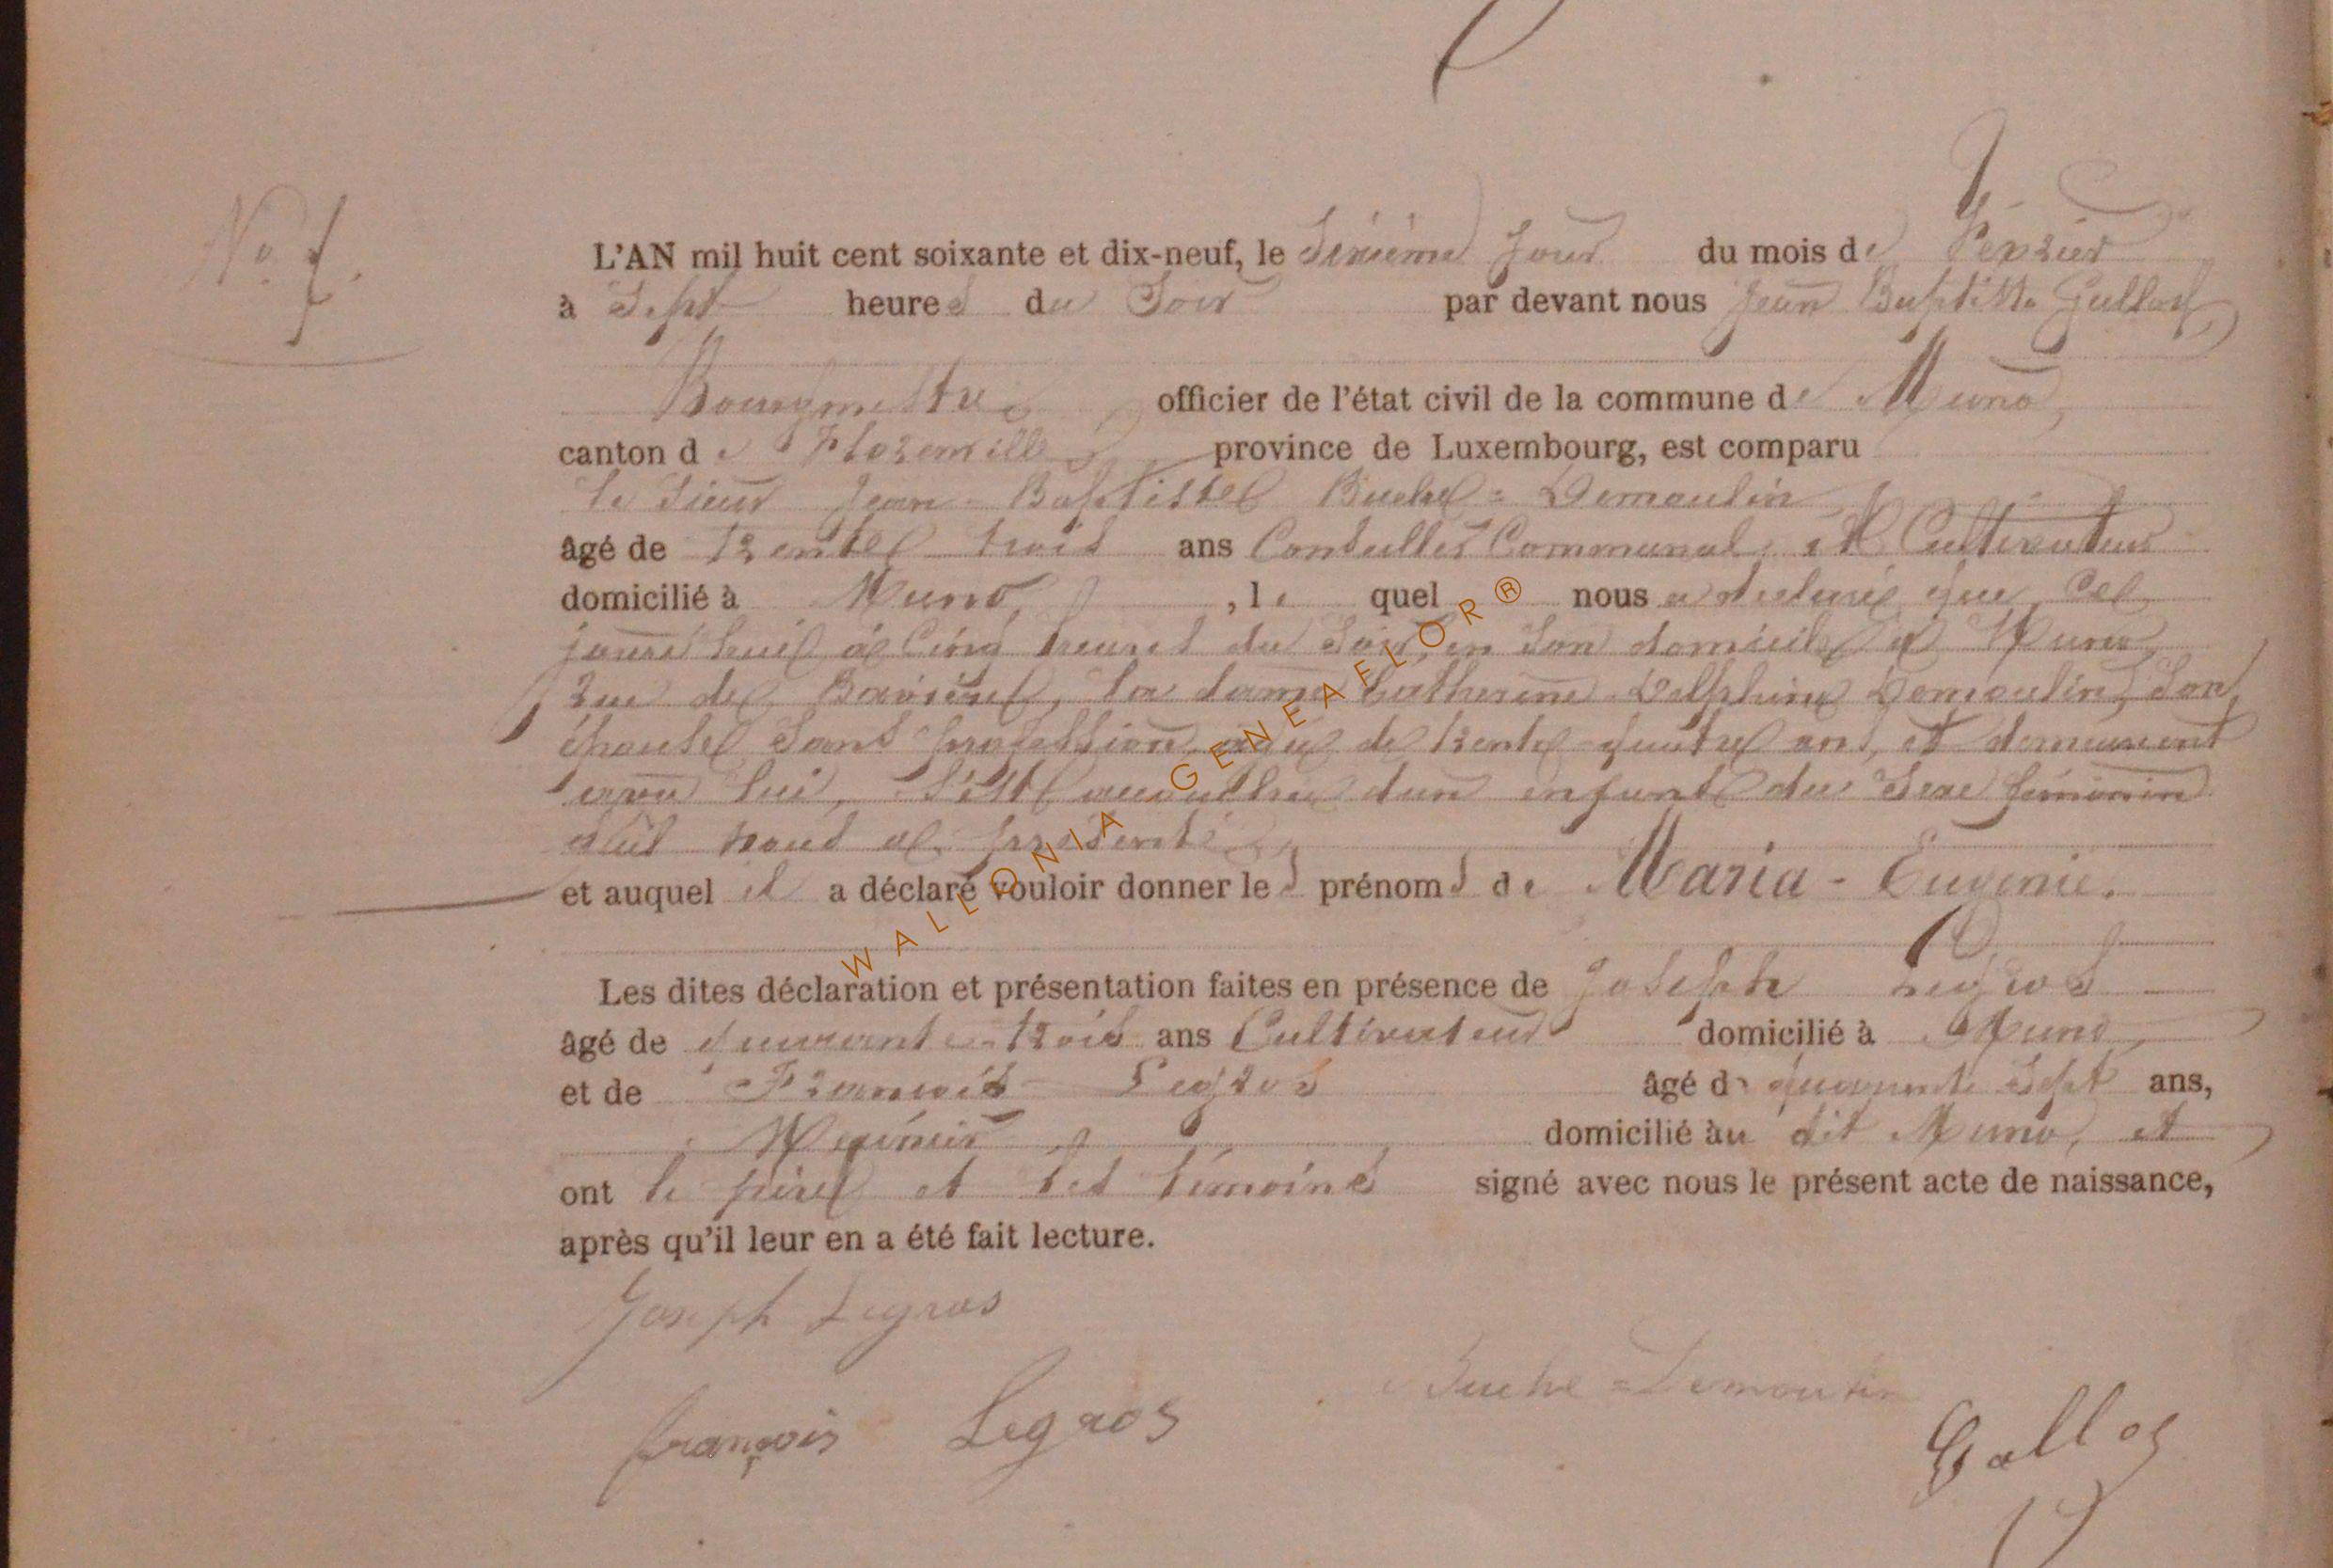 N° 7.
L'AN mil huit cent soixante et dix-neuf, le jour du mois de Février
à Sept heures du Soir par devant nous Jean Baptiste Gallos,
Bourgmestre officier de l'état civil de la commune de Muno,
canton de Florenville province de Luxembourg, est comparu
le Sieur Jean-Baptiste Buche=Demoulin
âgé de trente trois ans Conseiller Communal et Cultivateur
domicilié à Muno, , le quel nous a declaré que ce
jourd'hui à Cinq heures du Soir, en Son domicile à Muno
rue de la dame Catherine Delphine Demoulin, Son
épouse Sans profession, agée de trente-quatre ans, et demeurant
avec lui, S'est accouchée d'un enfant du Sexe féminin
qu'il nous a présenté
et auquel il a déclaré vouloir donner les prénoms de Maria-Eugenie.
Les dites déclaration et présentation faites en présence de Joseph Legros
âgé de quarante-trois ans Cultivateur domicilié à Muno,
et de François Legros âgé de quarante Sept ans,
domicilié àu dit Muno, et
ont le père et les témoins signé avec nous le présent acte de naissance,
après qu'il leur en a été fait lecture.
Joseph Legros
Buche=Demoulin
françois Legros
Gallos
WALLONIA GENEAFLOR®